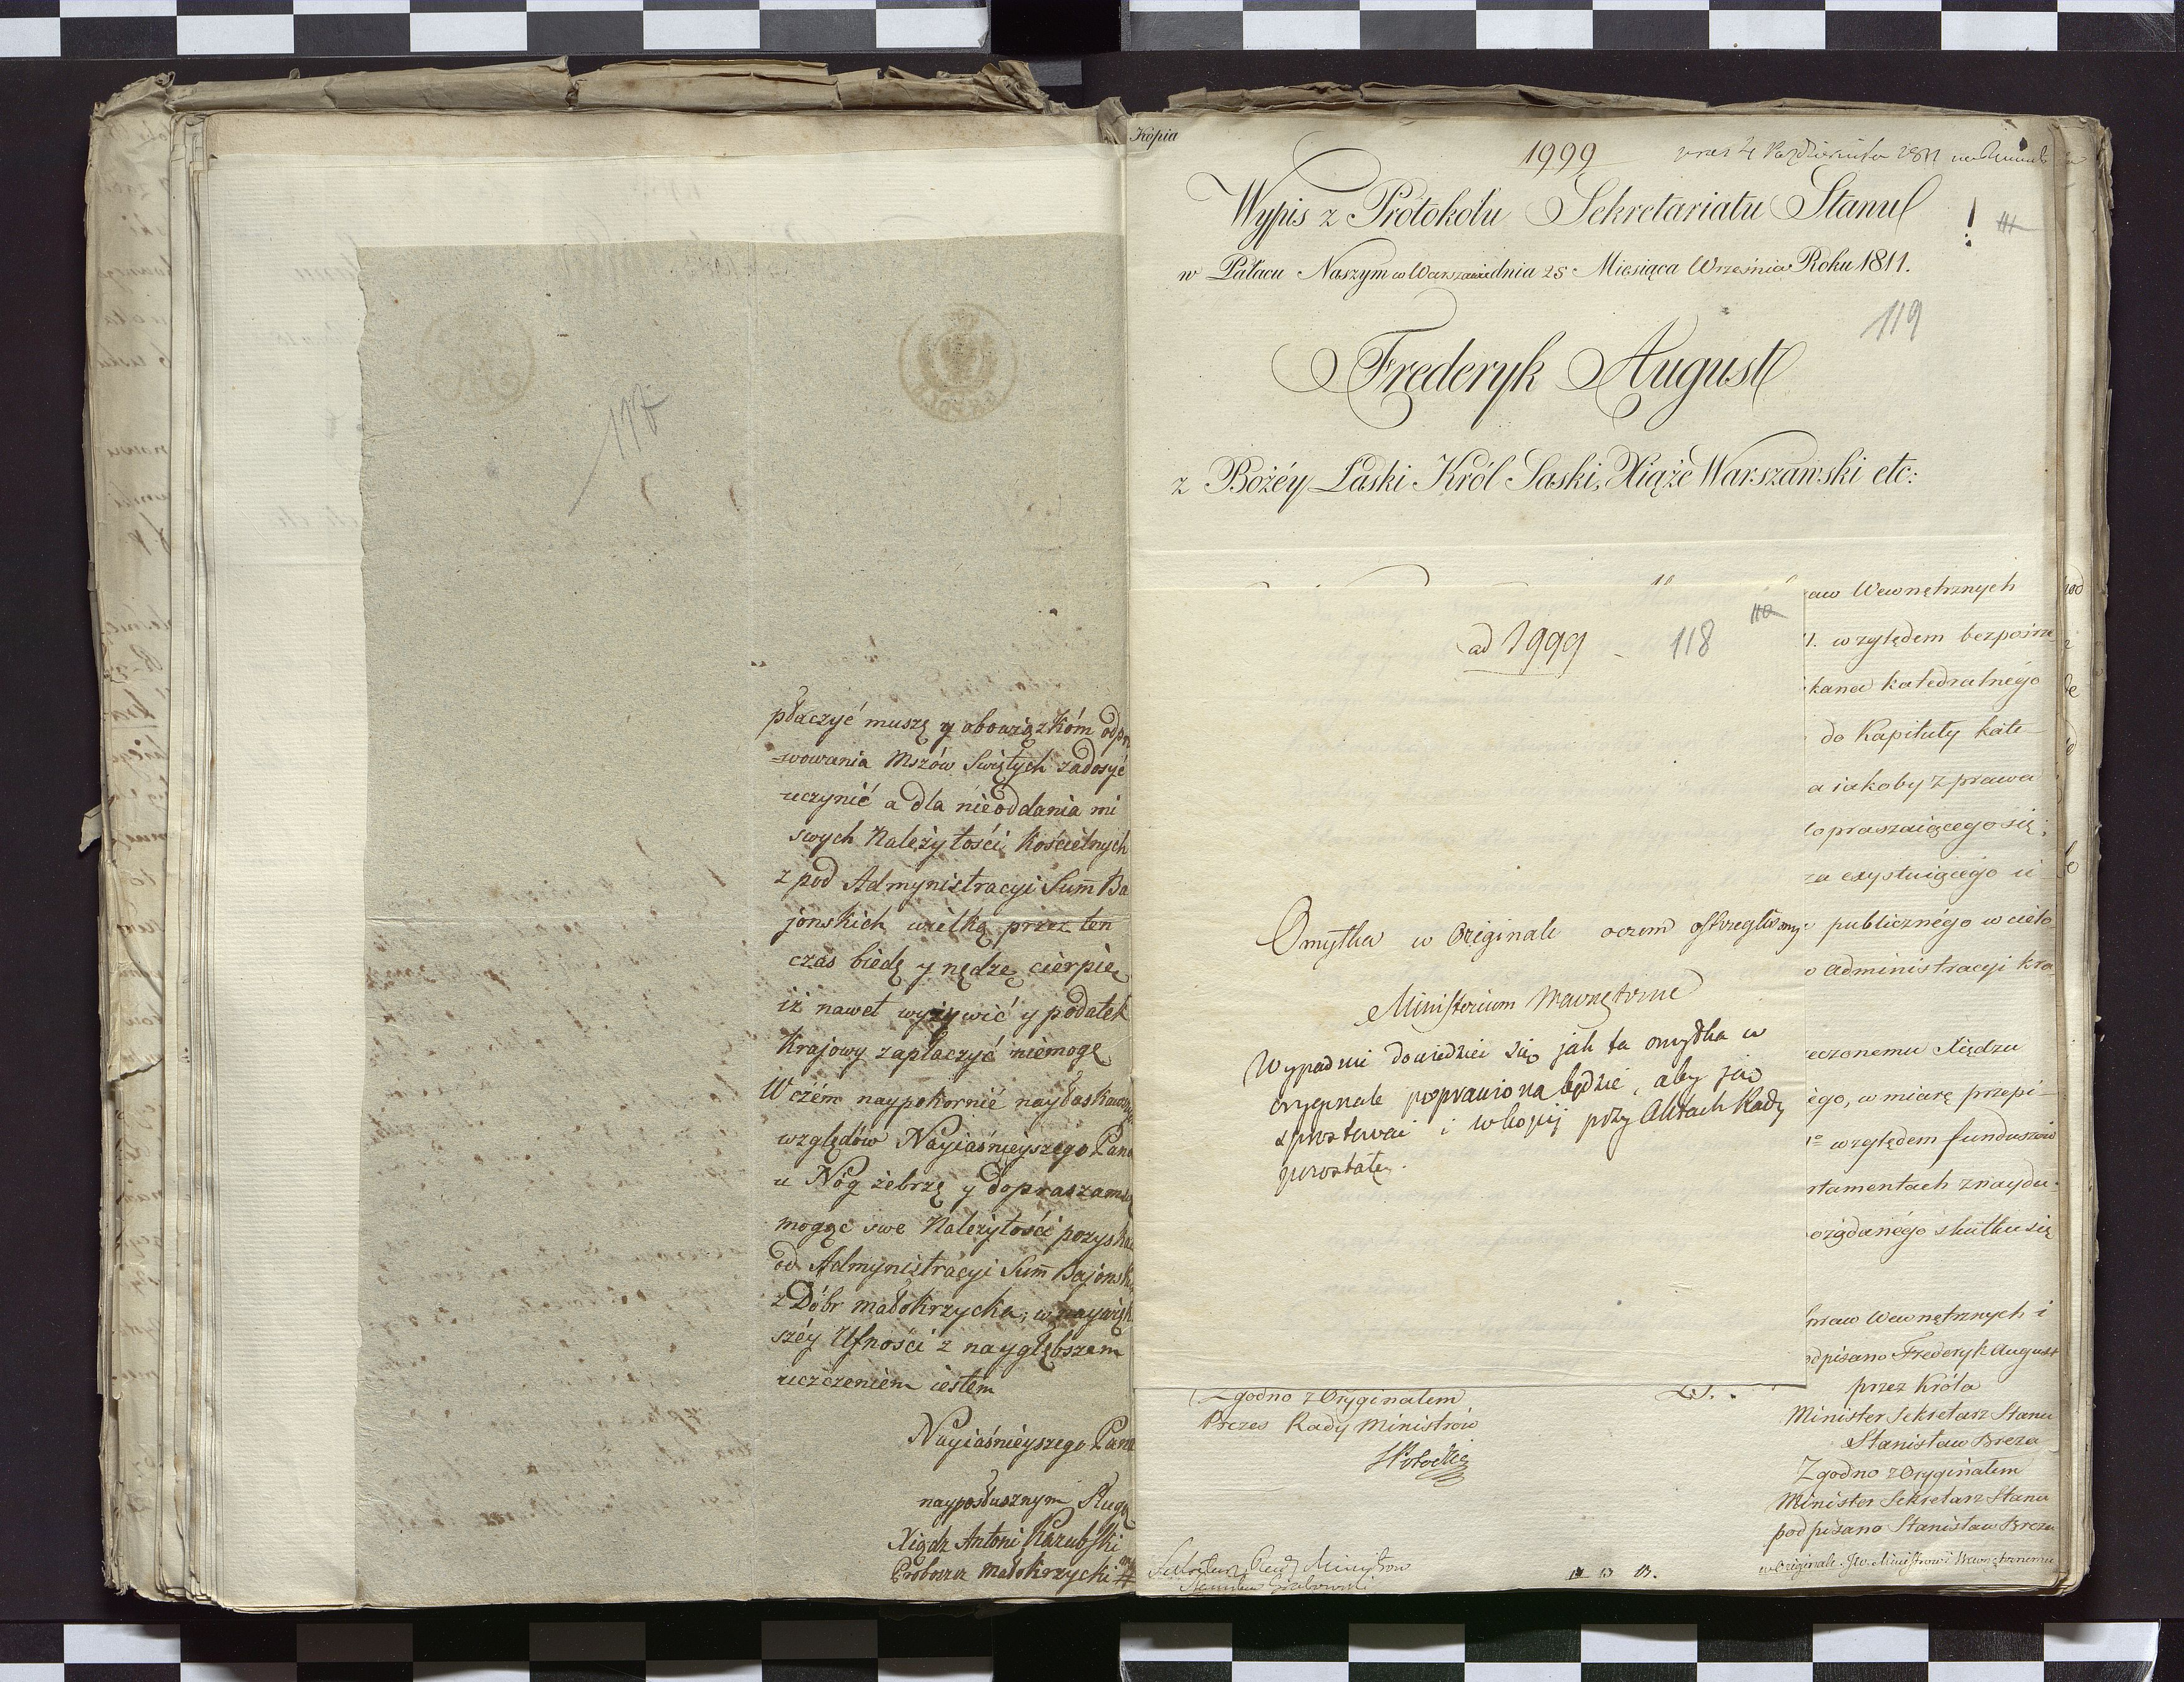 117
płaczyć muszę y obowiązkóm odpra
=wowania Mszów Swiętych zadosyć
uczynić a dla nieoddania mi
swych Należytości Kościelnych
z pod Admynistracyi Sum̃ Ba
jonskich wielką przez ten
czas biedę y nędzę cierpię
iż nawet wyżywić y podatek
Krajowy zapłaczyć niemogę
W czém naypokornié nayłaskaw
względów Nayiaśnieyszego Pana
u Nóg żebrzę y dopraszamsię
mogąc swe Należytości pozyskać
od Admynistracyi Sum̃ Bajonsk
z Dóbr małokrzycka, w naywięk
széy Ufności z naygłębszem
uczczeniem iestem
Nayiaśnieyszego Pana
nayposłusznym Sługą
Xiądz Antoni Kazubski
Proboszcz Małokrzycki
Kópia
1999
4 Października 1811
Wypis z Protokołu Sekretariatu Stanu
w Pałacu Naszym w Warszawie dnia 25 Miesiąca Września Roku 1811.
!
119
Frederyk August
z Bożéy Łaski Król Saski, Xiąże Warszawski etc:
ad 1999 - 118
110
Omyłka w Originale oczem ostrzegliśmy
Ministerium Wewnętrzne
Wypadnie dowiedzieć się jak ta omyłka w
oryginale poprawioną będzie, aby ją
sprostować i w kopij przy Aktach Rady
pozostałey.
aw Wewnętrznych
1. względem bezpośrze
kana Katedralnégo
do Kapituły kate-
a iakoby z prawa
opraszaiącego się;
za exystuiącego u-
publicznégo w cieło
o administracyi kra
eczonemu Xiędzu
iégo, w miarę przepi-
1º względem funduszów
rtamentach znaydu-
ożądanégo skutku się
praw Wewnętrznych i
odpisano Frederyk August
przez Króla
Minister Sekretarz Stanu
Stanisław Breza
Zgodno z Oryginałem
Minister Sekretarz Stanu
podpisano Stanisław Breza
w Originale. JW. Ministrowi Wewnętrznemu
Zgodno z Oryginałem
Prezes Rady Ministrów
SPotocki
Sekretarz Rady Ministrów
Stanisław Grabowski